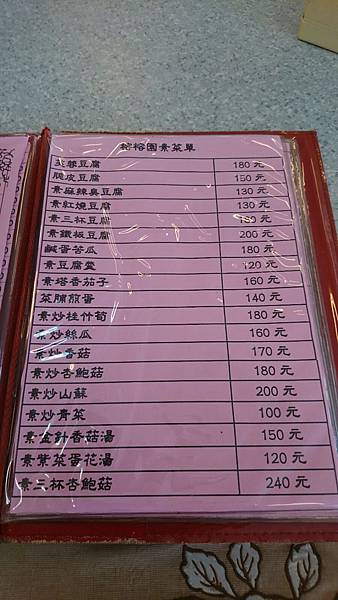 榕榕園素菜單
豆腐 180 元
脆皮豆腐 150 元
素麻辣臭豆腐 130 元
素紅燒豆腐 130 元
素三杯豆腐 元
素鐵板豆腐 200 元
鹹蛋苦瓜 180 元
素豆腐煲 120 元
素塔香茄子 160 元
菜脯煎蛋 140 元
素炒桂竹筍 180 元
素炒絲瓜 160 元
素炒香菇 170 元
素炒杏鮑菇 180 元
素炒山蘇 200 元
素炒青菜 100 元
素金針香菇湯 150 元
素紫菜蛋花湯 120 元
素三杯杏鮑菇 240 元